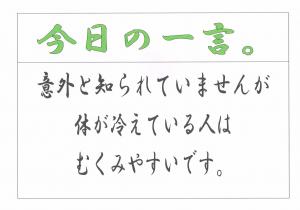 今日の一言。
意外と知られていませんが
体が冷えている人は
むくみやすいです。